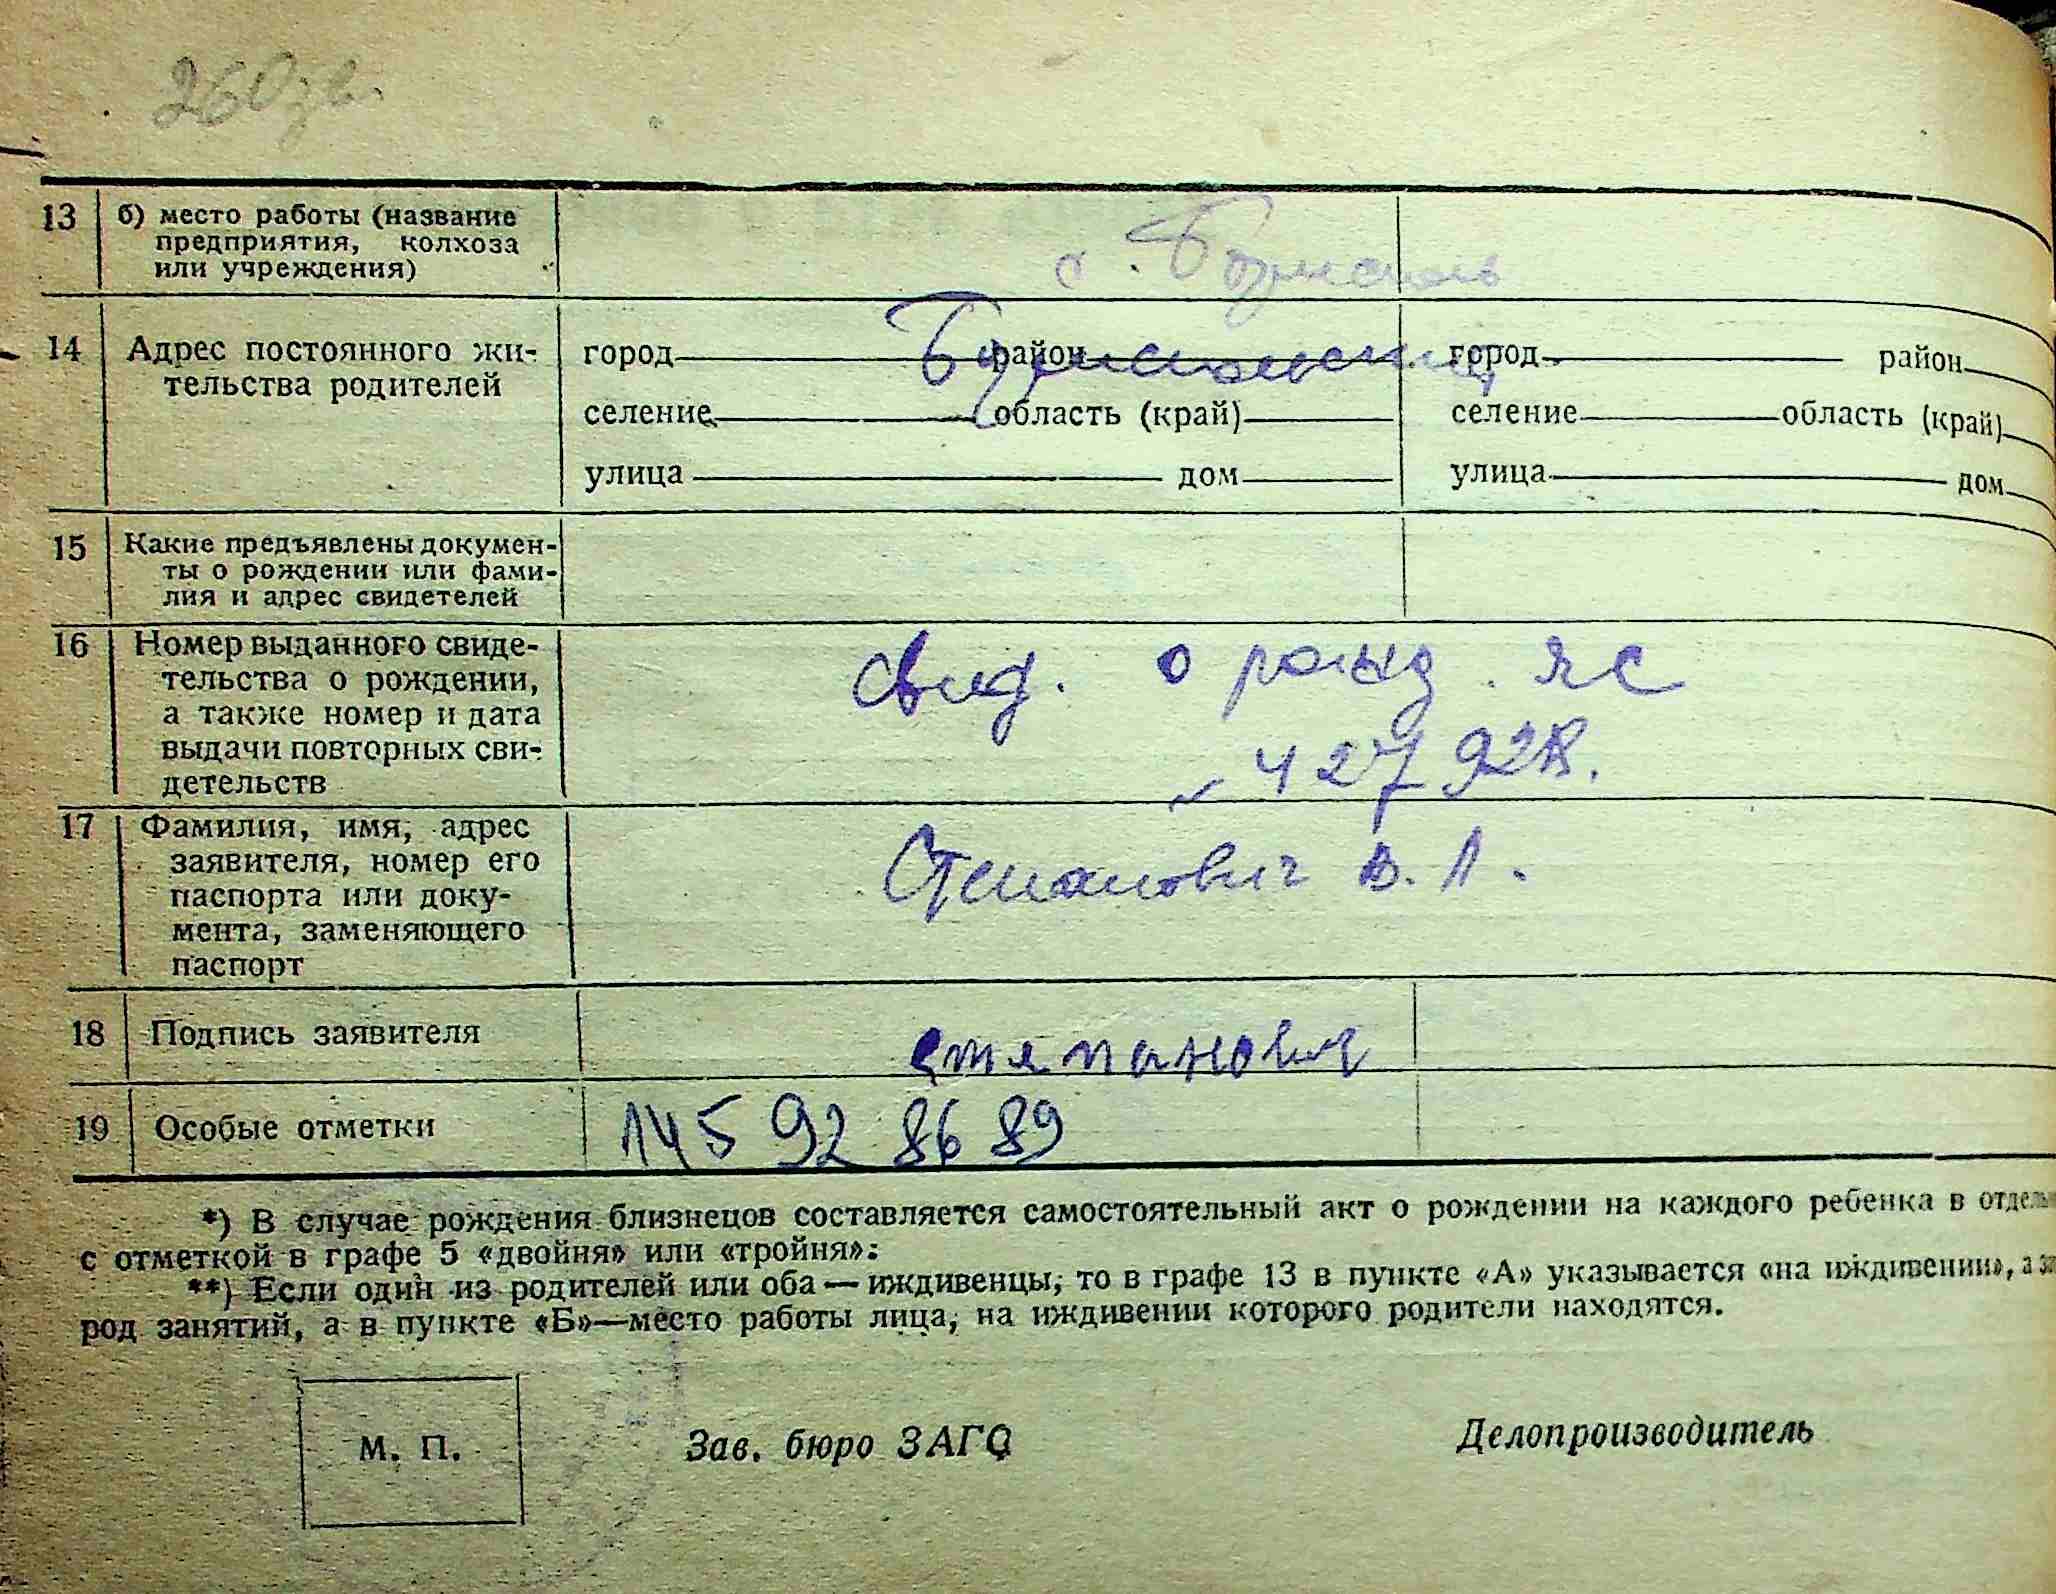 260зв.
13 б) место работы (название
предприятия, колхоза
или учреждения)
с.
14 Адрес постоянного жи-
тельства родителей
город район город район
селение область (край) селение область (край)
улица дом улица дом
15 Какие предъявлены докумен-
ты о рождении или фами-
лия и адрес свидетелей
16 Номер выданного свиде-
тельства о рождении,
а также номер и дата
выдачи повторных сви-
детельств
свид. о рожд. ЯС
427928.
17 Фамилия, имя, адрес
заявителя, номер его
паспорта или доку-
мента, заменяющего
паспорт
Степанович В. А.
18 Подпись заявителя степанович
19 Особые отметки 145 92 86 89
*) В случае рождения близнецов составляется самостоятельный акт о рождении на каждого ребенка в отдель
с отметкой в графе 5 «двойня» или «тройня»:
**) Если один из родителей или оба — иждивенцы, то в графе 13 в пункте «А» указывается «на иждивении», а за
род занятий, а в пункте «Б»—место работы лица, на иждивении которого родители находятся.
М. П. Зав. бюро ЗАГС Делопроизводитель